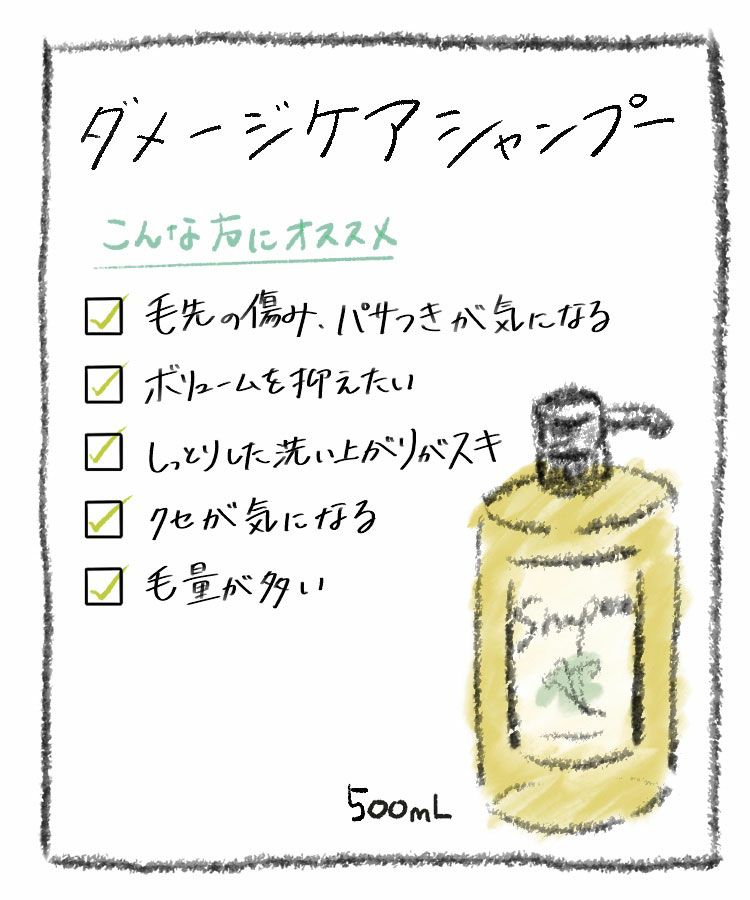 ダメージケアシャンプー
こんな方にオススメ
毛先の傷み、パサつきが気になる
ボリュームを抑えたい
しっとりした洗い上がりがスキ
クセが気になる
毛量が多い
500mL